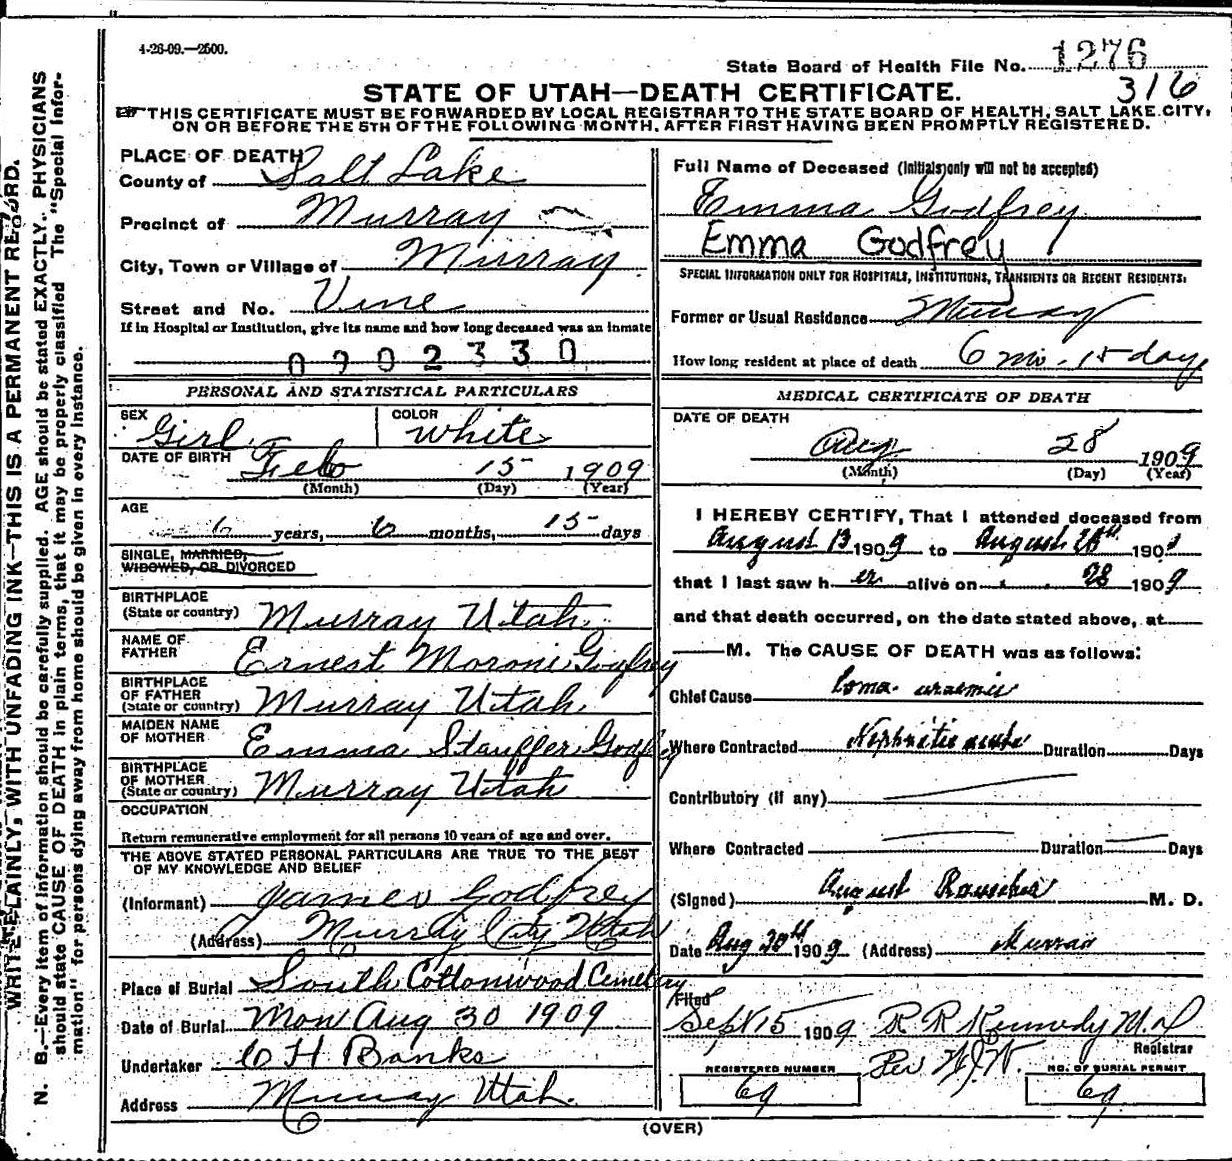 4-28-09.—2500.
State Board of Health File No. 1276
316
STATE OF UTAH—DEATH CERTIFICATE.
THIS CERTIFICATE MUST BE FORWARDED BY LOCAL REGISTRAR TO THE STATE BOARD OF HEALTH, SALT LAKE CITY,
ON OR BEFORE THE 5TH OF THE FOLLOWING MONTH, AFTER FIRST HAVING BEEN PROMPTLY REGISTERED.
PLACE OF DEATH
County of Salt Lake
Precinct of Murray
City, Town or Village of Murray
Street and No. Vine
If in Hospital or Institution, give its name and how long deceased was an inmate
0902330
PERSONAL AND STATISTICAL PARTICULARS
SEX Girl COLOR White
DATE OF BIRTH Feb 15 1909
(Month) (Day) (Year)
AGE
6 years, 6 months, 15 days
SINGLE, MARRIED,
WIDOWED, OR DIVORCED
BIRTHPLACE
(State or country) Murray Utah
NAME OF
FATHER Ernest Moroni Godfrey
BIRTHPLACE
OF FATHER
(State or country) Murray Utah
MAIDEN NAME
OF MOTHER Emma Stauffer Godfrey
BIRTHPLACE
OF MOTHER
(State or country) Murray Utah
OCCUPATION
Return remunerative employment for all persons 10 years of age and over.
THE ABOVE STATED PERSONAL PARTICULARS ARE TRUE TO THE BEST
OF MY KNOWLEDGE AND BELIEF
(Informant) James Godfrey
(Address) Murray City Utah
Place of Burial South Cottonwood Cemetery
Date of Burial Mon Aug 30 1909
Undertaker H Banks
Address Murray Utah.
Full Name of Deceased (Initials only will not be accepted)
Emma Godfrey
Emma Godfrey
SPECIAL INFORMATION ONLY FOR HOSPITALS, INSTITUTIONS, TRANSIENTS OR RECENT RESIDENTS:
Former or Usual Residence Murray
How long resident at place of death 6 mo - 15 days
MEDICAL CERTIFICATE OF DEATH
DATE OF DEATH
Aug 28 1909
(Month) (Day) (Year)
I HEREBY CERTIFY, That I attended deceased from
August 13 1909 to August 28th 190
that I last saw h er alive on 28 1909
and that death occurred, on the date stated above, at
M. The CAUSE OF DEATH was as follows:
Chief Cause Coma uraemic
Where Contracted Nephritis acuta Duration Days
Contributory (if any)
Where Contracted Duration Days
(Signed) August M. D.
Date Aug 30th 1909 (Address) Murray
Filed
Sept 15 1909 R R Kennedy M.D
Registrar
Per
REGISTERED NUMBER NO. OF BURIAL PERMIT
69 69
(OVER)
WRITE PLAINLY, WITH UNFADING INK—THIS IS A PERMANENT RECORD.
N. B.—Every item of information should be carefully supplied. AGE should be stated EXACTLY. PHYSICIANS
should state CAUSE OF DEATH in plain terms, that it may be properly classified The "Special Infor-
mation" for persons dying away from home should be given in every instance.